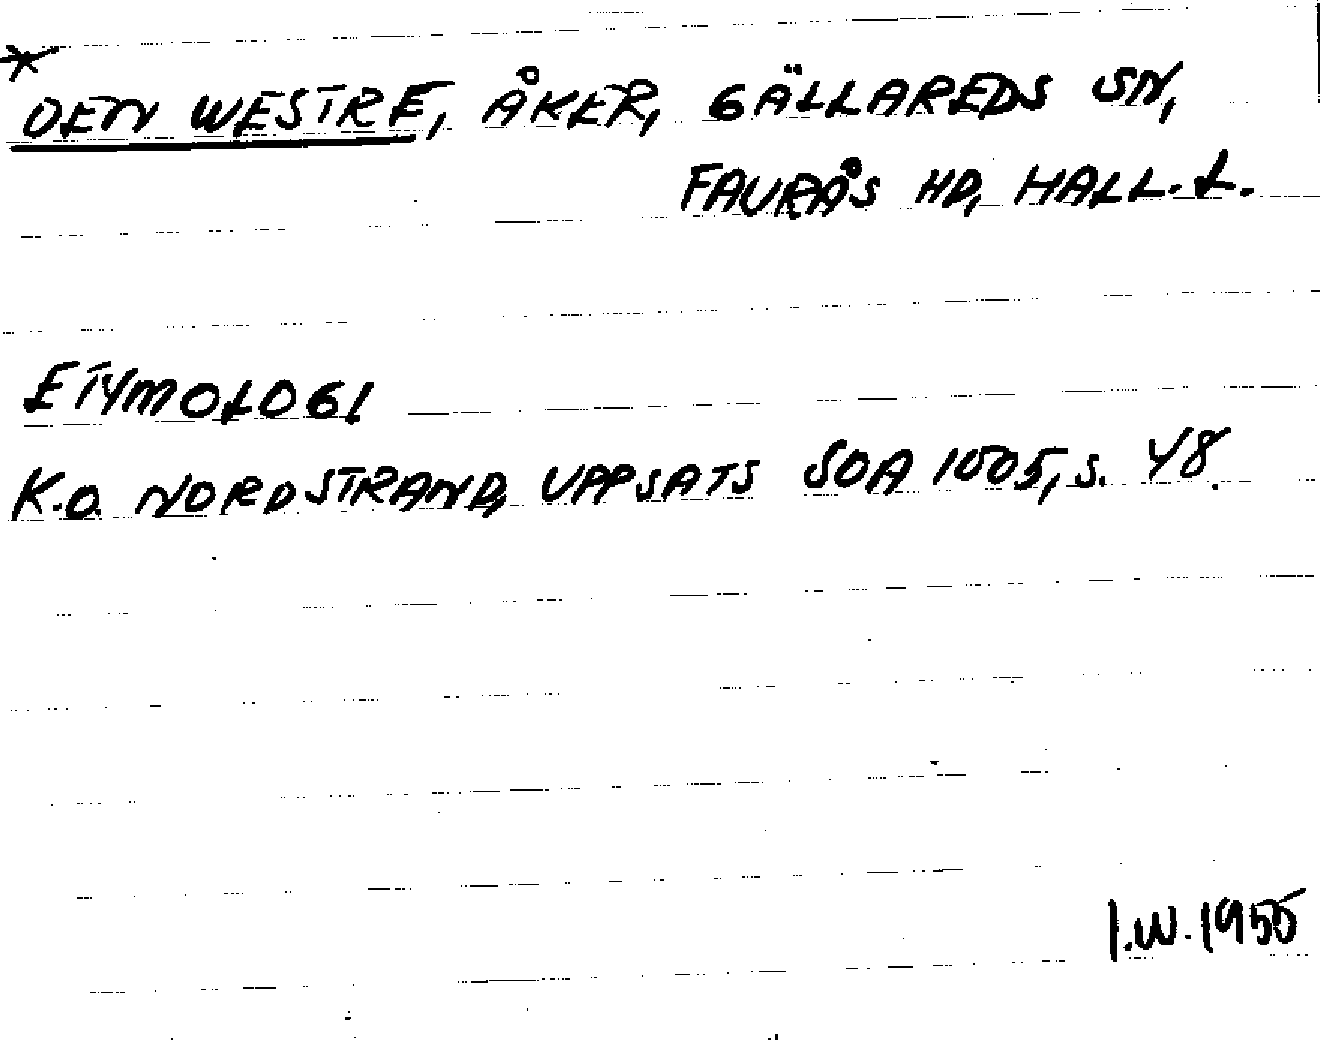 * DEN WESTRE, ÅKER, GÄLLAREDS SN,
FAURÅS HD, HALL. L.
ETYMOLOGI
K.O. NORDSTRAND, UPPSATS SOA 1005, S. 48.
I.W. 1955